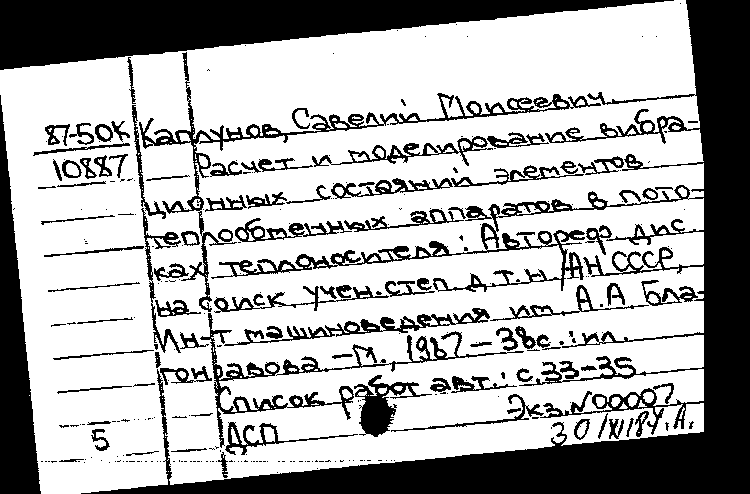 87-50К Каплунов, Савелий Моисеевич.
10887 Расчет и моделирование вибра-
ционных состояний элементов
теплообменных аппаратов в пото-
ках теплоносителя: Автореф. дис.
на соиск. учен. степ. д.т.н. /АН СССР,
Ин-т машиноведения им. А.А. Бла-
гонравова. – М., 1987. – 38с. : ил.
Список работ авт.: с. 33-35.
Экз. N00007.
5 ДСП